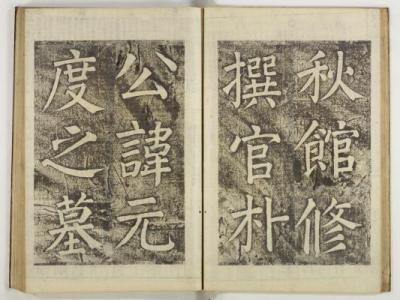 秋館修
撰官朴
公諱元
度之墓